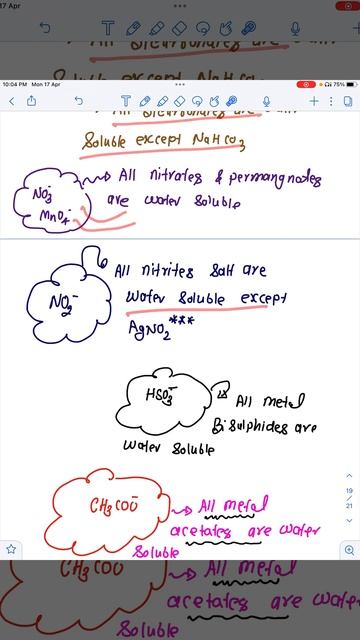 17 Apr
T
10:04 PM Mon 17 Apr
75%
T
All bicarbonates are
Soluble except NaHCO3
NO3- MnO4-
All nitrates & permangnates
are water soluble
NO2-
All nitrites salt are
Water Soluble except
AgNO2***
HSO3-
All metal
Bisulphides are
water soluble
CH3COO-
All metal
acetates are water
Soluble
19
21
CH3COO
All metal
acetates are water
Soluble